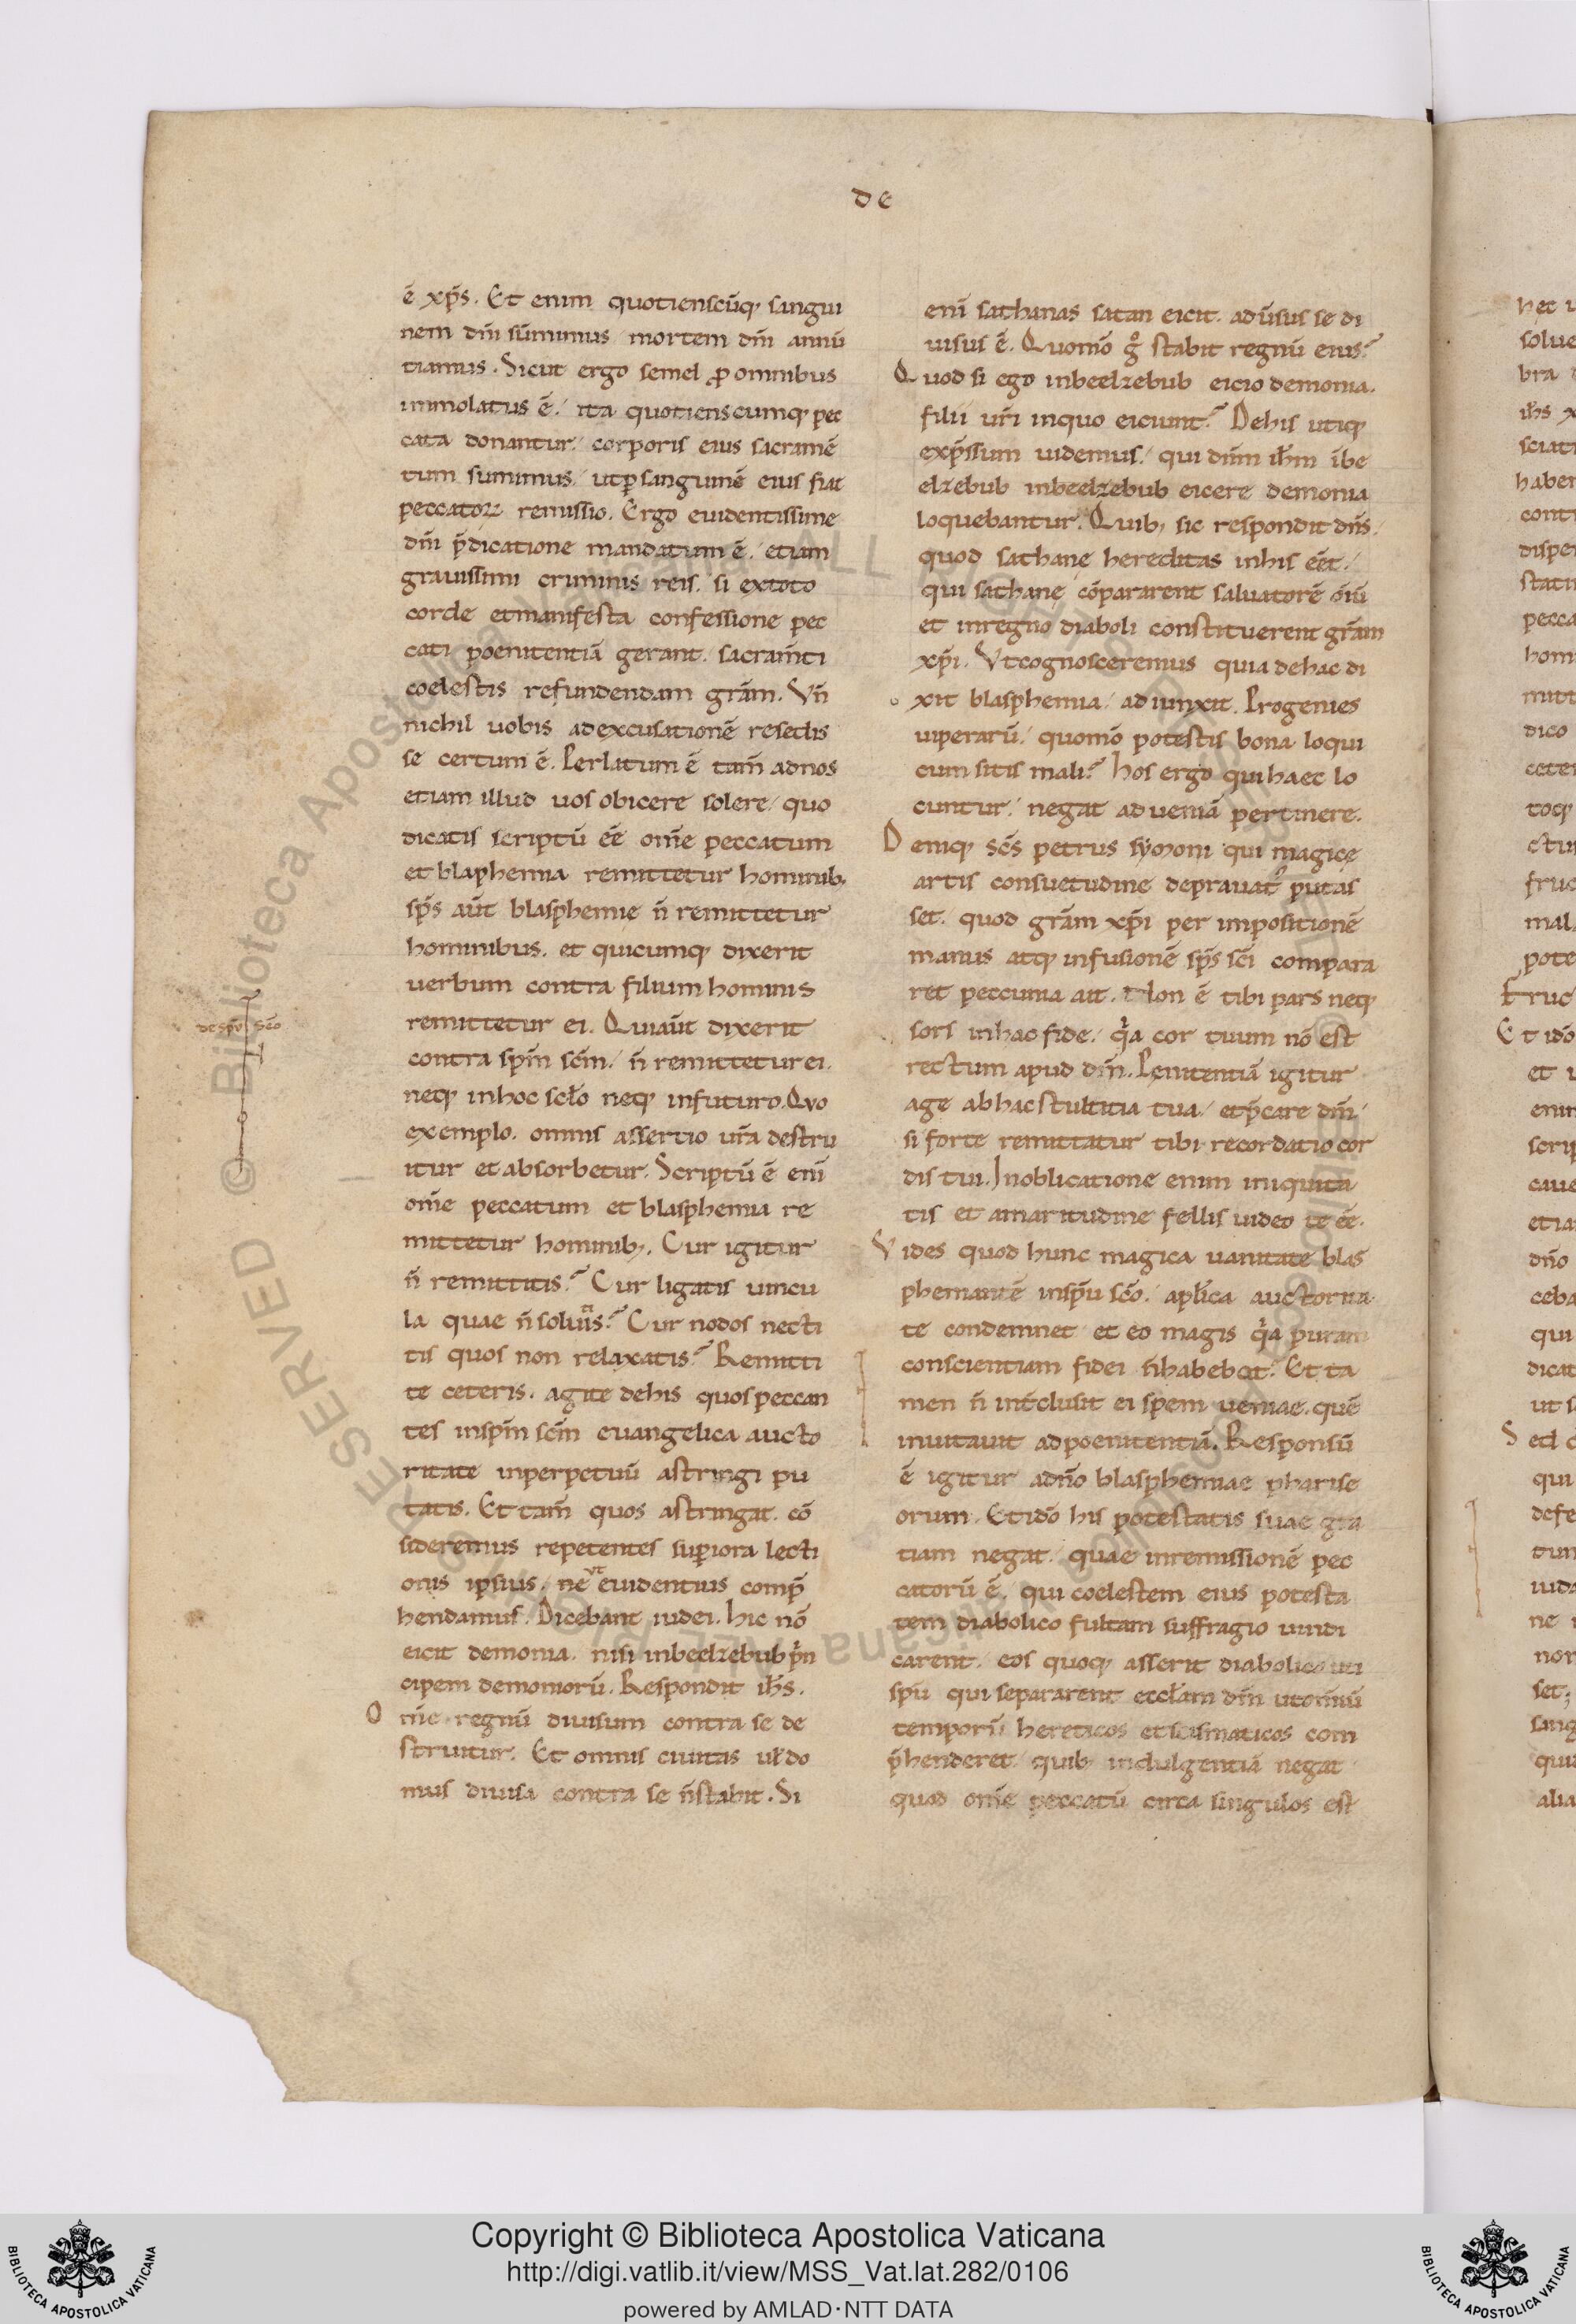 de
ē xp̄s. Et enim quotienscūq; sangui
nem dm̄i sūmimus mortem dm̄i annū
tiamus. Sicut ergo semel ꝓ omnibus
immolatus ē. ita quotienscumq; pec
cata donantur. corporis eius sacramē
tum sumimus, utꝑ sanguinē eius fiat
peccatoꝝ remissio. Ergo euidentissime
dm̄i p̄dicatione mandatum ē. etiam
grauissimi criminis reis. si extoto
corde etmanifesta confessione pec
cati poenitentiā gerant. sacram̄ti
coelestis refundendam gr̄am. Vn̄
nichil uobis adexcusationē resedis
se certum ē. Perlatum ē tam̄ adnos
etiam illud uos obicere solere, quo
dicatis scriptū ēē om̄e peccatum
et blaphemia remittetur hominib;
sp̄s aūt blasphemie n̄ remittetur
hominibus. et quicumq; dixerit
uerbum contra filium hominis
remittetur ei. Quiaūt dixerit
contra sp̄m sc̄m. n̄ remittetur ei.
neq; inhoc scło neq; infuturo. Quo
exemplo. omnis assertio ur̄a destru
itur et absorbetur. Scriptū ē enī
om̄e peccatum et blasphemia re
mittetur hominib;. Cur igitur
n̄ remittitis? Cur ligatis uincu
la quae n̄ soluitis? Cur nodos necti
tis quos non relaxatis? Remitti
te ceteris. agite dehis quos peccan
tes insp̄m sc̄m euangelica aucto
ritate inperpetuū astringi pu
tatis. Et tam̄ quos astringat. cō
sideremus repetentes suꝑiora lecti
onis ipsius. ne ut euidentius comp̄
hendamus. Dicebant iudei. hic nō
eicit demonia. nisi inbeelzebub prin
cipem demoniorū. Respondit ih̄s.
Om̄e regnū diuisum contra se de
struitur. Et omnis ciuitas uł do
mus diuisa contra se n̄stabit. Si
de spū sc̄o
enī sathanas satan eicit. adūsus se di
uisus ē. Quomō gͦ stabit regnū eius?
Quod si ego inbeelzebub eicio demonia.
filii ur̄i inquo eiciunt? Dehis utiq;
exp̄ssum uidemus. qui dn̄m ih̄m ībe
elzebub inbeelzebub eicere demonia
loquebantur. Quib; sic respondit dn̄s.
quod sathanę hereditas inhis ēet.
qui sathanę cōpararent saluatorē ōiū
et inregno diaboli constituerent gr̄am
xp̄i. Vtcognosceremus quia dehac di
xit blasphemia. ad iunxit. Progenies
uiperarū. quomō potestis bona loqui
cum sitis mali? hos ergo qui haec lo
cuntur. negat ad ueniā pertinere.
Deniq; sc̄s petrus symoni qui magicę
artis consuetudine deprauatꝰ putas
set. quod gr̄am xp̄i per impositionē
manus atq; infusionē sp̄s sc̄i compara
ret peccunia ait. Non ē tibi pars neq;
sors inhac fide. qa cor tuum nō est
rectum apud dm̄. Penitentiā igitur
age ab hac stultitia tua. etp̄care dm̄
si forte remittatur tibi recordatio cor
dis tui. Inoblicatione enim iniquita
tis et amaritudine fellis uideo te ēē.
Vides quod hunc magica uanitate blas
phemantē inspū sc̄o. aplica auctorita
te condemnet et eo magis qa puram
conscientiam fidei n̄habebat? Et ta
men n̄ int̄clusit ei spem ueniae. quē
inuitauit adpoenitentiā. Responsū
ē igitur adn̄o blasphemiae pharise
orum. Etidō his potestatis suae gra
tiam negat. quae inremissionē pec
catorū ē. qui coelestem eius potesta
tem diabolico fultam suffragio uindi
carent. eos quoq; asserit diabolico uti
spū qui separarent eccłam dm̄ utom̄iū
temporū hereticos et scismaticos com
p̄henderet quib; indulgentiā negat
quod om̄e peccatū circa singulos est
Copyright © Biblioteca Apostolica Vaticana
http://digi.vatlib.it/view/MSS_Vat.lat.282/0106
powered by AMLAD·NTT DATA
BIBLIOTECA APOSTOLICA VATICANA
BIBLIOTECA APOSTOLICA VATICANA